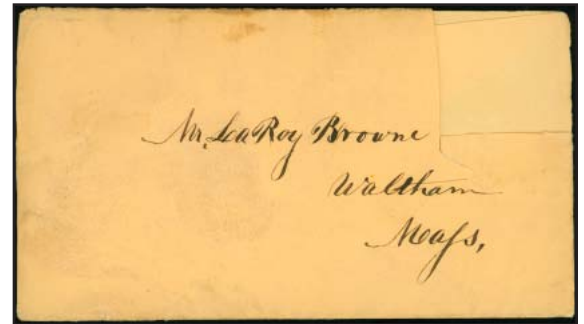 Mr. LeaRoy Browne
Waltham
Mass,